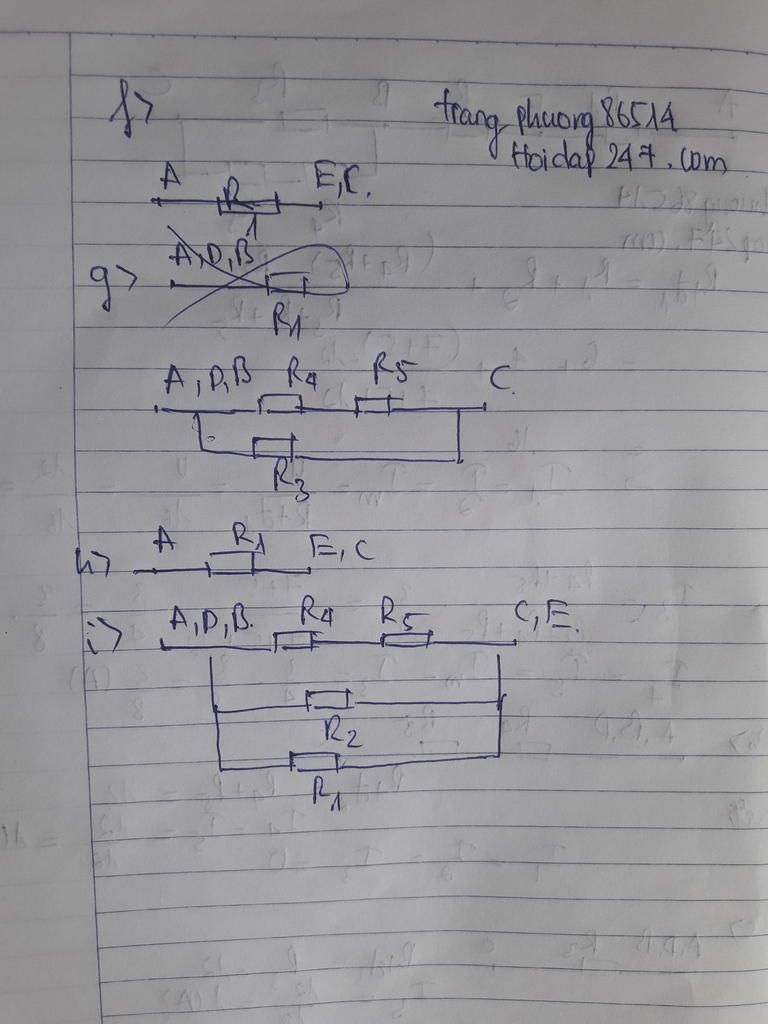 f>
trang phuong 86514
Hoidap 247.com
A R1 E,C.
g> A,D,B
R1
A,D,B R4 R5 C.
R3
h> A R1 E,C
i> A,D,B. R4 R5 C,E.
R2
R1